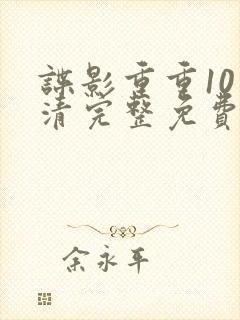 諜影重重10
清完整免費
余永平